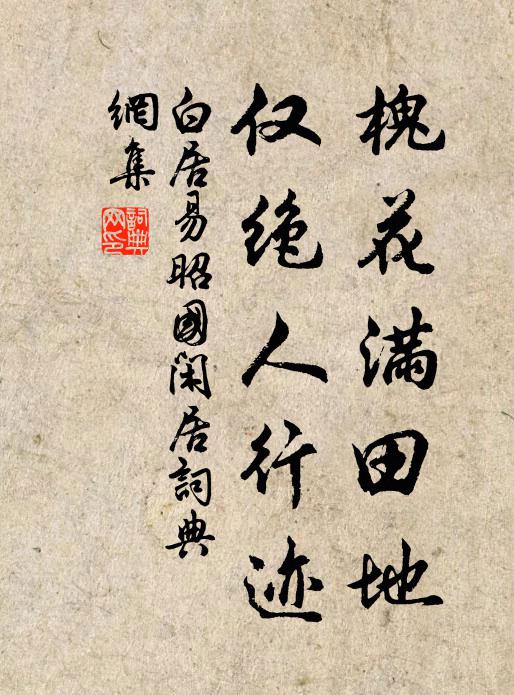 槐花满田地
仅绝人行迹
白居易昭國闲居詞典
網集
詞典
网印